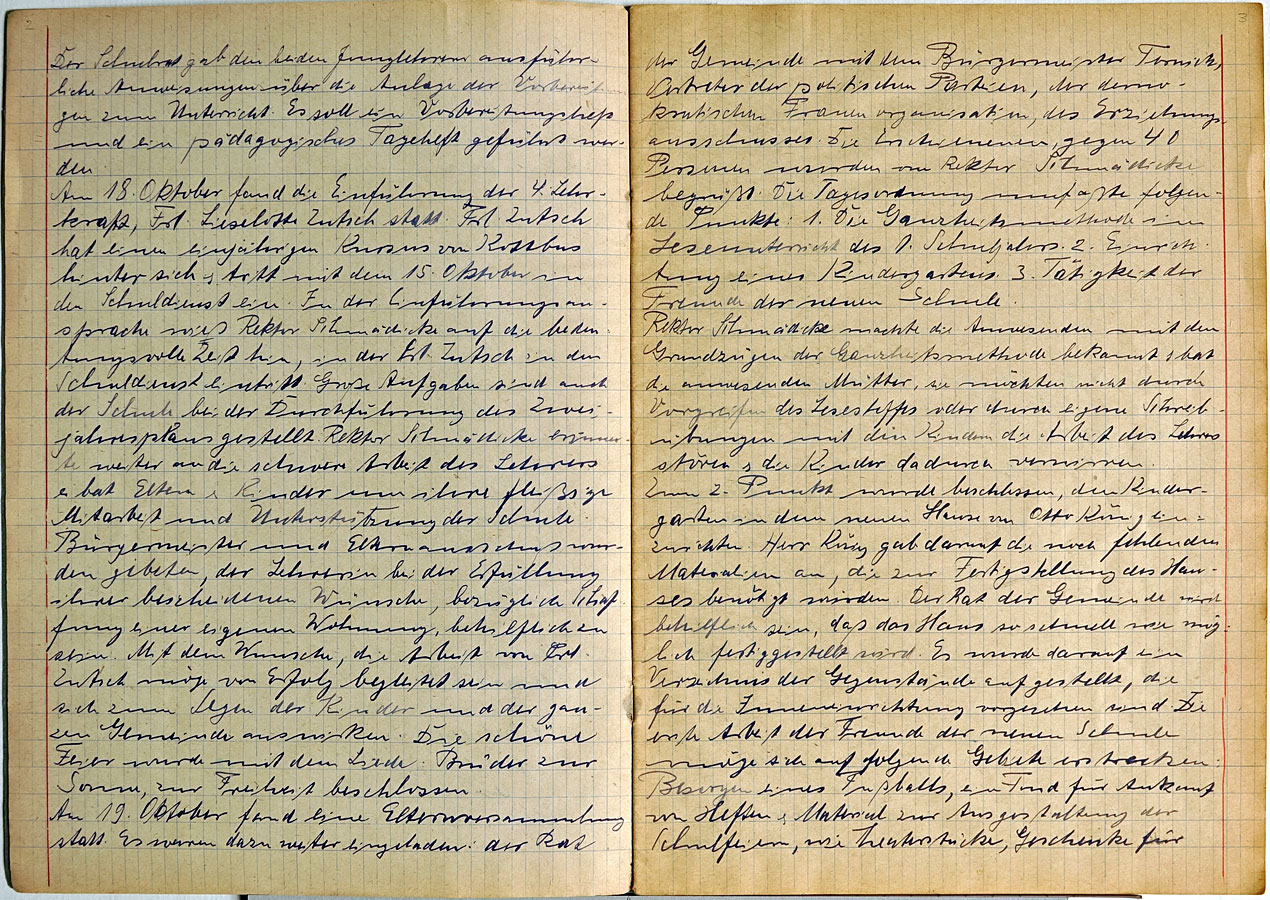 2
Der Schulrat gab den beiden Junglehrern ausführ-
liche Anweisungen über die Anlage der Vorbereitun-
gen zum Unterricht. Es soll ein Vorbereitungsheft
und ein pädagogisches Tageheft geführt wer-
den.
Am 18. Oktober fand die Einführung der 4. Lehr-
kraft, Frl. Lieselotte Zutsch statt. Frl. Zutsch
hat einen einjährigen Kursus von Kottbus
hinter sich u. tritt mit dem 15. Oktober in
den Schuldienst ein. In der Einführungsan-
sprache wies Rektor Schmädicke auf die bedeu-
tungsvolle Zeit hin, in der Frl. Zutsch in den
Schuldienst eintritt. Große Aufgaben sind auch
der Schule bei der Durchführung des Zwei-
jahresplans gestellt. Rektor Schmädicke erinner-
te weiter an die schwere Arbeit des Lehrers
u. bat Eltern u. Kinder um ihre fleißige
Mitarbeit und Unterstützung der Schule.
Bürgermeister und Elternausschuss wur-
den gebeten, der Lehrerin bei der Erfüllung
ihrer bescheidenen Wünsche, bezüglich Schaf-
fung einer eigenen Wohnung, behilflich zu
sein. Mit dem Wunsche, die Arbeit von Frl.
Zutsch möge von Erfolg begleitet sein und
sich zum Segen der Kinder und der gan-
zen Gemeinde auswirken. Die schöne
Feier wurde mit dem Liede: Brüder zur
Sonne, zur Freiheit beschlossen.
Am 19. Oktober fand eine Elternversammlung
statt. Es waren dazu weiter eingeladen: der Rat
3
der Gemeinde mit dem Bürgermeister Tornick,
Vertreter der politischen Parteien, der demo-
kratischen Frauenorganisation, des Erziehungs-
ausschusses. Die Erschienenen, gegen 40
Personen wurden von Rektor Schmädicke
begrüßt. Die Tagesordnung umfaßte folgen-
de Punkte: 1. Die Ganzheitsmethode im
Leseunterricht des 1. Schuljahrs. 2. Einrich-
tung eines Kindergartens. 3. Tätigkeit der
Freunde der neuen Schule.
Rektor Schmädicke machte die Anwesenden mit den
Grundzügen der Ganzheitsmethode bekannt u. bat
die anwesenden Mütter, sie möchten nicht durch
Vorgreifen des Lesestoffes oder durch eigene Schreib-
übungen mit den Kindern die Arbeit des Lehrers
stören u. die Kinder dadurch verwirren.
Zum 2. Punkt wurde beschlossen, den Kinder-
garten in dem neuen Hause von Otto ein-
zurichten. Herr gab darauf die noch fehlenden
Materialien an, die zur Fertigstellung des Hau-
ses benötigt würden. Der Rat der Gemeinde wird
behilflich sein, daß das Haus so schnell wie mög-
lich fertiggestellt wird. Es wurde darauf ein
Verzeichnis der Gegenstände aufgestellt, die
für die Inneneinrichtung vorgesehen sind. Die
erste Arbeit der Freunde der neuen Schule
möge sich auf folgende Gebiete erstrecken:
Besorgen eines Fußballs, ein Fond für Ankauf
von Heften u. Material zur Ausgestaltung der
Schulfeiern, wie Theaterstücke, Geschenke für